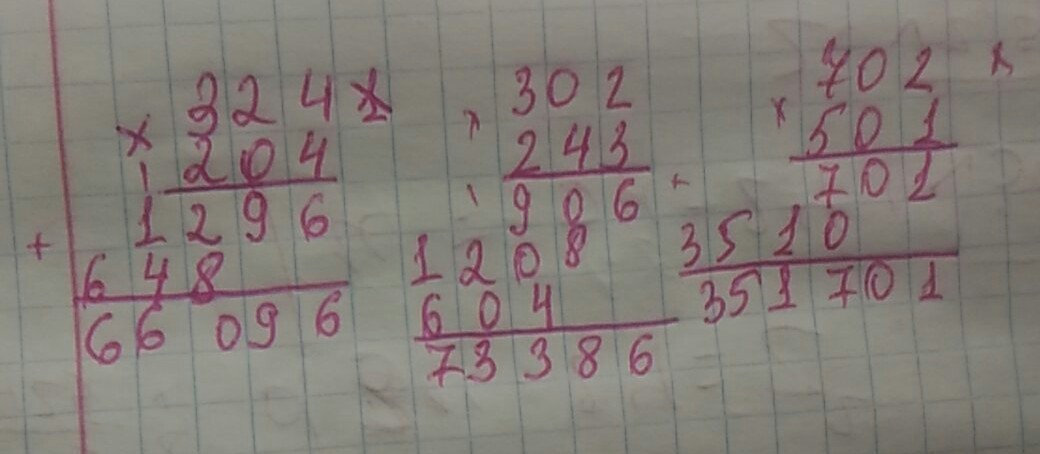 324 x
× 204
1296
+ 648
66 096
302
× 243
906
1208
604
73 386
702 x
× 501
+ 701
3510
351 701